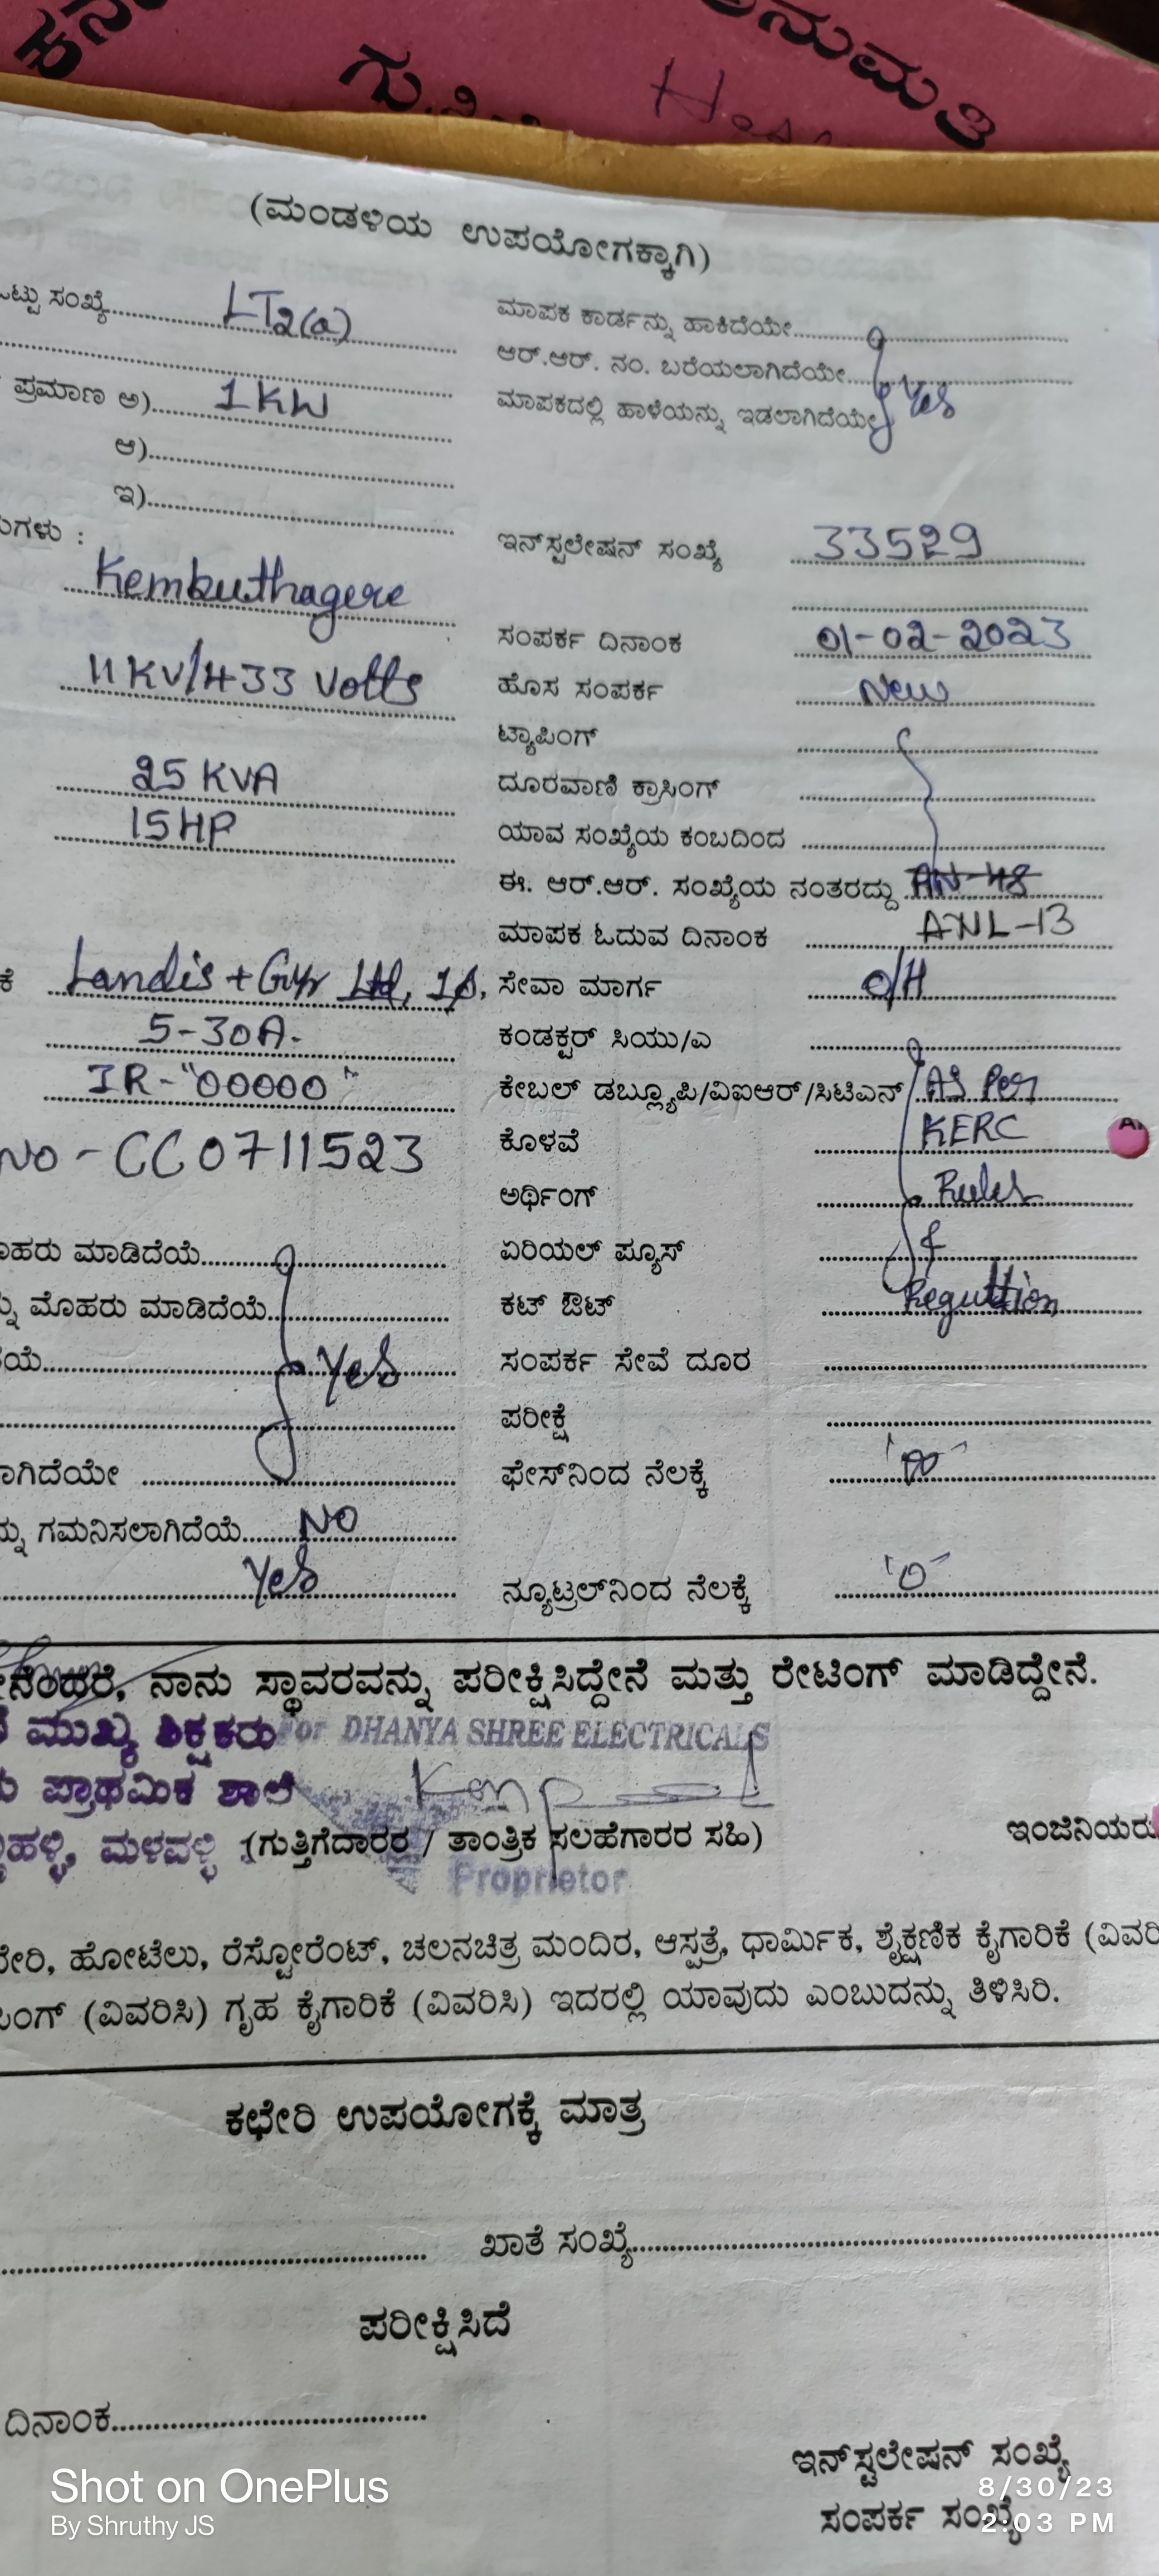 ಅನುಮತಿ
(ಮಂಡಳಿಯ ಉಪಯೋಗಕ್ಕಾಗಿ)
ಸಂಖ್ಯೆ LT2(a)
ಮಾಪಕ ಕಾರ್ಡನ್ನು ಹಾಕಿದೆಯೇ
ಆರ್.ಆರ್. ನಂ. ಬರೆಯಲಾಗಿದೆಯೇ
ಪ್ರಮಾಣ ಅ) 1KW
ಮಾಪಕದಲ್ಲಿ ಹಾಳೆಯನ್ನು ಇಡಲಾಗಿದೆಯೇ Yes
ಆ)
ಇ)
ಇನ್‌ಸ್ಟಲೇಷನ್ ಸಂಖ್ಯೆ 33529
Kembuthagere
ಸಂಪರ್ಕ ದಿನಾಂಕ 01-02-2023
11KV/433 Volts
ಹೊಸ ಸಂಪರ್ಕ New
ಟ್ಯಾಪಿಂಗ್
25 KVA
ದೂರವಾಣಿ ಕ್ರಾಸಿಂಗ್
15HP
ಯಾವ ಸಂಖ್ಯೆಯ ಕಂಬದಿಂದ
ಈ. ಆರ್.ಆರ್. ಸಂಖ್ಯೆಯ ನಂತರದ್ದು
ಮಾಪಕ ಓದುವ ದಿನಾಂಕ ANL-13
Landis + Gyr Ltd, 1ø,
ಸೇವಾ ಮಾರ್ಗ O/H
5-30A.
ಕಂಡಕ್ಟರ್ ಸಿಯು/ಎ
IR-"00000"
ಕೇಬಲ್ ಡಬ್ಲ್ಯೂಪಿ/ವಿಐಆರ್/ಸಿಟಿಎನ್ As Per
NO - CC0711523
ಕೊಳವೆ KERC
ಅರ್ಥಿಂಗ್ Rules
ಮಾಡಿದೆಯೆ
ಏರಿಯಲ್ ಫ್ಯೂಸ್ &
ಮೊಹರು ಮಾಡಿದೆಯೆ
ಕಟ್ ಔಟ್ Reguttion
Yes
ಸಂಪರ್ಕ ಸೇವೆ ದೂರ
ಪರೀಕ್ಷೆ
ಫೇಸ್‌ನಿಂದ ನೆಲಕ್ಕೆ
ಗಮನಿಸಲಾಗಿದೆಯೆ NO
Yes
ನ್ಯೂಟ್ರಲ್‌ನಿಂದ ನೆಲಕ್ಕೆ '0'
ನಾನು ಸ್ಥಾವರವನ್ನು ಪರೀಕ್ಷಿಸಿದ್ದೇನೆ ಮತ್ತು ರೇಟಿಂಗ್ ಮಾಡಿದ್ದೇನೆ.
ಮುಖ್ಯ ಶಿಕ್ಷಕರು
For DHANYA SHREE ELECTRICALS
ಪ್ರಾಥಮಿಕ ಶಾಲೆ
ಮಳವಳ್ಳಿ
(ಗುತ್ತಿಗೆದಾರರ / ತಾಂತ್ರಿಕ ಸಲಹೆಗಾರರ ಸಹಿ)
ಇಂಜಿನಿಯರು
Proprietor
ಹೋಟೆಲು, ರೆಸ್ಟೋರೆಂಟ್, ಚಲನಚಿತ್ರ ಮಂದಿರ, ಆಸ್ಪತ್ರೆ, ಧಾರ್ಮಿಕ, ಶೈಕ್ಷಣಿಕ ಕೈಗಾರಿಕೆ
(ವಿವರಿಸಿ) ಗೃಹ ಕೈಗಾರಿಕೆ (ವಿವರಿಸಿ) ಇದರಲ್ಲಿ ಯಾವುದು ಎಂಬುದನ್ನು ತಿಳಿಸಿರಿ.
ಕಛೇರಿ ಉಪಯೋಗಕ್ಕೆ ಮಾತ್ರ
ಖಾತೆ ಸಂಖ್ಯೆ
ಪರೀಕ್ಷಿಸಿದೆ
ದಿನಾಂಕ
ಇನ್‌ಸ್ಟಲೇಷನ್ ಸಂಖ್ಯೆ
ಸಂಪರ್ಕ ಸಂಖ್ಯೆ
Shot on OnePlus
By Shruthy JS
8/30/23
2:03 PM